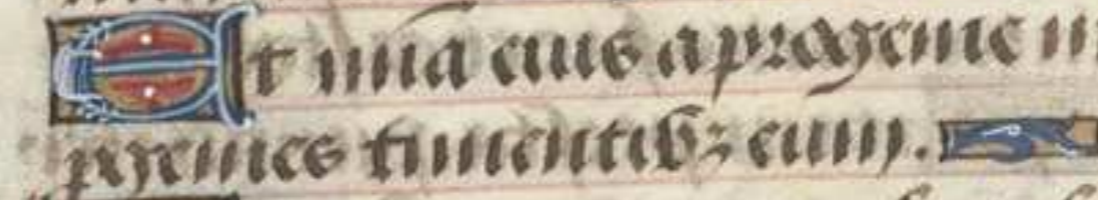 Et mia eius a progenie in
progenies timentibz eum.